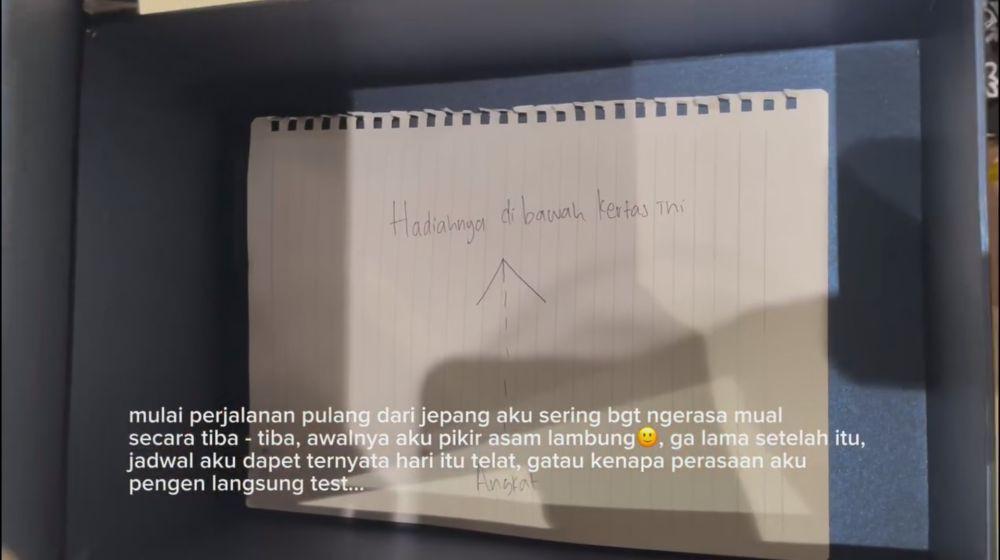 Hadiahnya di bawah kertas ini
mulai perjalanan pulang dari jepang aku sering bgt ngerasa mual
secara tiba - tiba, awalnya aku pikir asam lambung🙂, ga lama setelah itu,
jadwal aku dapet ternyata hari itu telat, gatau kenapa perasaan aku
pengen langsung test...
Angkat